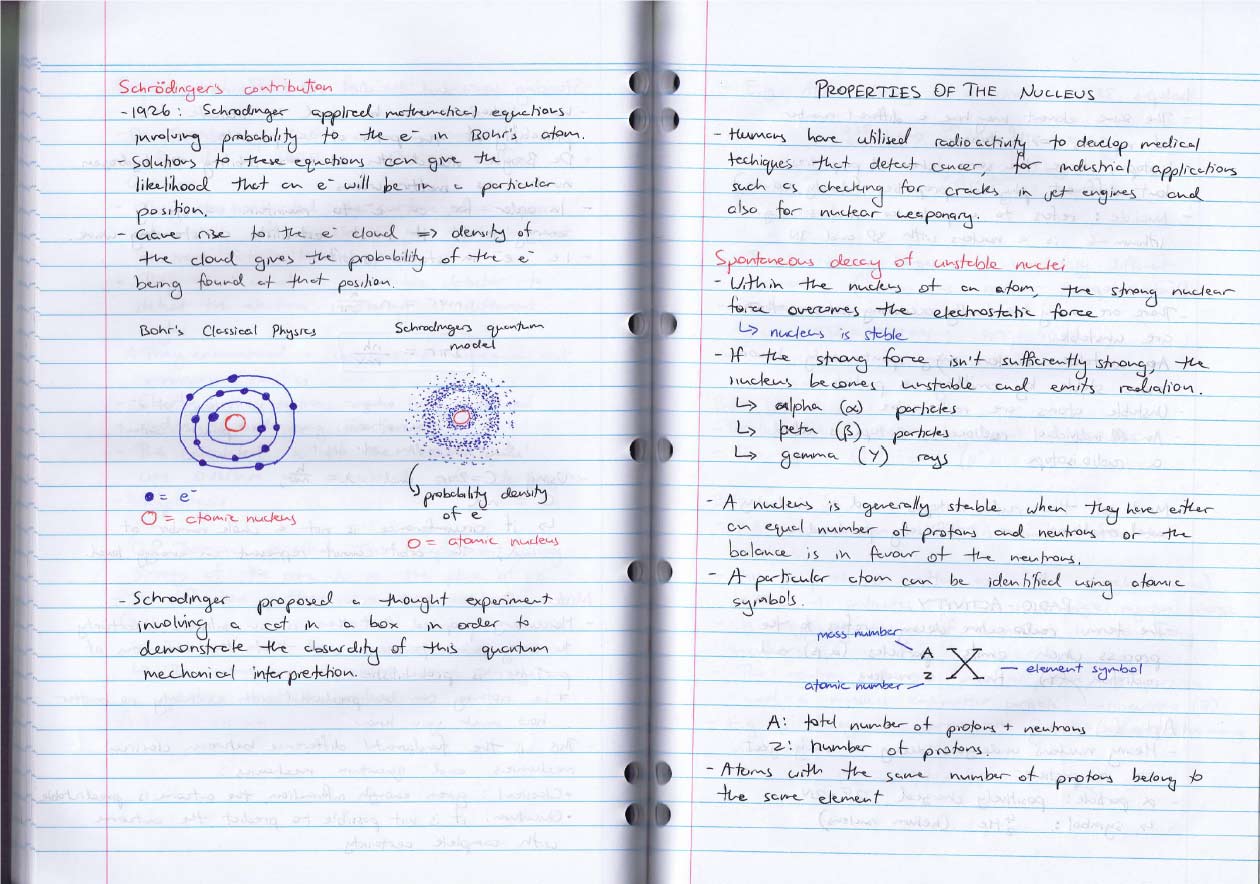 Schrödinger's contribution
- 1926: Schrodinger applied mathematical equations
involving probability to the e⁻ in Bohr's atom.
- Solutions to these equations can give the
likelihood that an e⁻ will be in a particular
position.
- Gave rise to the e⁻ cloud => density of
the cloud gives the probability of the e⁻
being found at that position.
Bohr's Classical Physics
Schrodingers quantum
model
● = e⁻
O = atomic nucleus
probability density
of e⁻
O = atomic nucleus
- Schrodinger proposed a thought experiment
involving a cat in a box in order to
demonstrate the absurdity of this quantum
mechanical interpretction.
PROPERTIES OF THE NUCLEUS
- Humans have utilised radioactivity to develop medical
techiques that detect cancer, for industrial applications
such as checking for cracks in jet engines and
also for nuclear weaponary.
Spontaneous decay of unstable nuclei
- Within the nucleus of an atom, the strong nuclear
force overcomes the electrostatic force
↳ nucleus is stable
- If the strong force isn't sufficiently strong, the
nucleus becomes unstable and emits radiation.
↳ alpha (α) particles
↳ beta (β) particles
↳ gamma (γ) rays
- A nucleus is generally stable when they have either
an equal number of protons and neutrons or the
balance is in favour of the neutrons.
- A particular atom can be identified using atomic
symbols.
mass number
A
X
Z
element symbol
atomic number
A: total number of protons + neutrons
Z: number of protons.
- Atoms with the same number of protons belong to
the same element